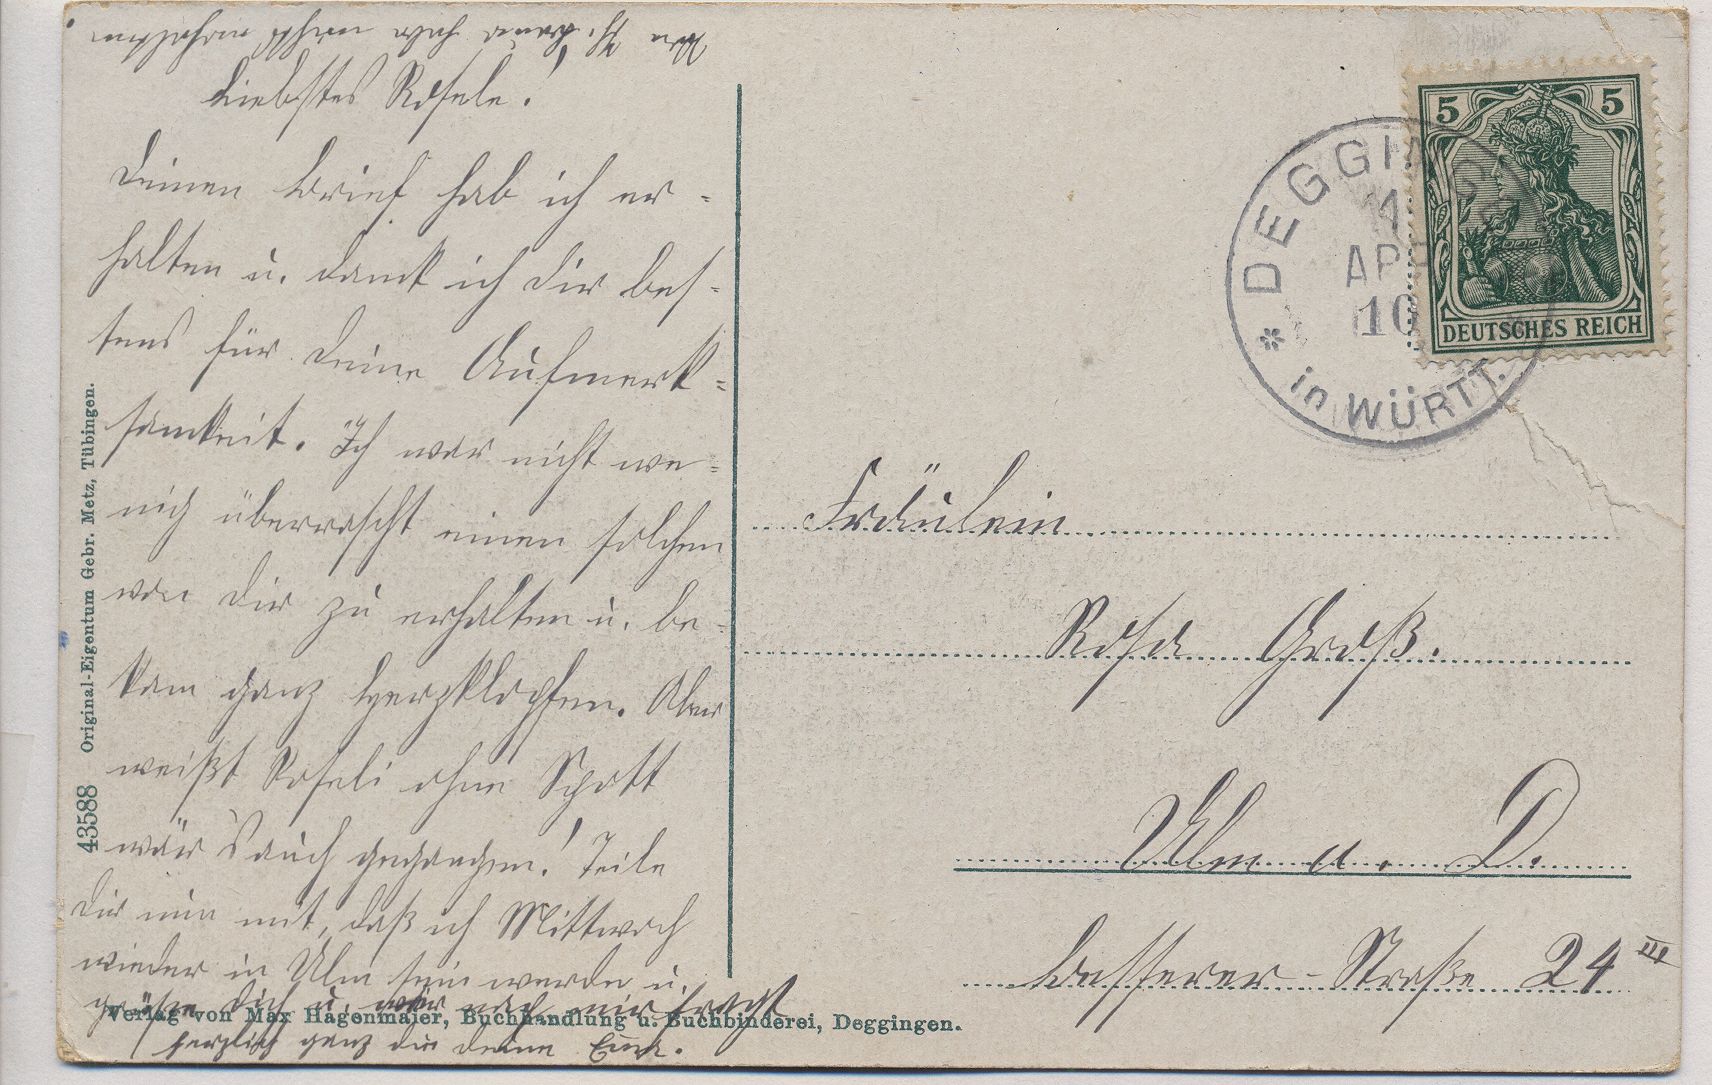 Liebstes Rosele!
Deinen Brief hab ich er-
halten u. dank ich Dir bes-
tens für Deine Aufmerk-
samkeit. Ich war nicht we-
nig überrascht einen solchen
von Dir zu erhalten u. be-
kam ganz Herzklopfen. Aber
weißt Roseli ohne Spott
wär's auch gegangen! Teile
Dir nun mit, daß ich Mittwoch
wieder in Ulm sein werde u.
grüße Dich u. wer nach mir fragt
herzlich ganz die Deine
43588 Original-Eigentum Gebr. Metz, Tübingen.
Verlag von Max Hagenmaier, Buchhandlung u. Buchbinderei, Deggingen.
5 5
DEUTSCHES REICH
DEGGINGEN
APR
10
in WÜRTT.
Fräulein
Rosa Groß.
Ulm a. D.
Besserer-Straße 24 III